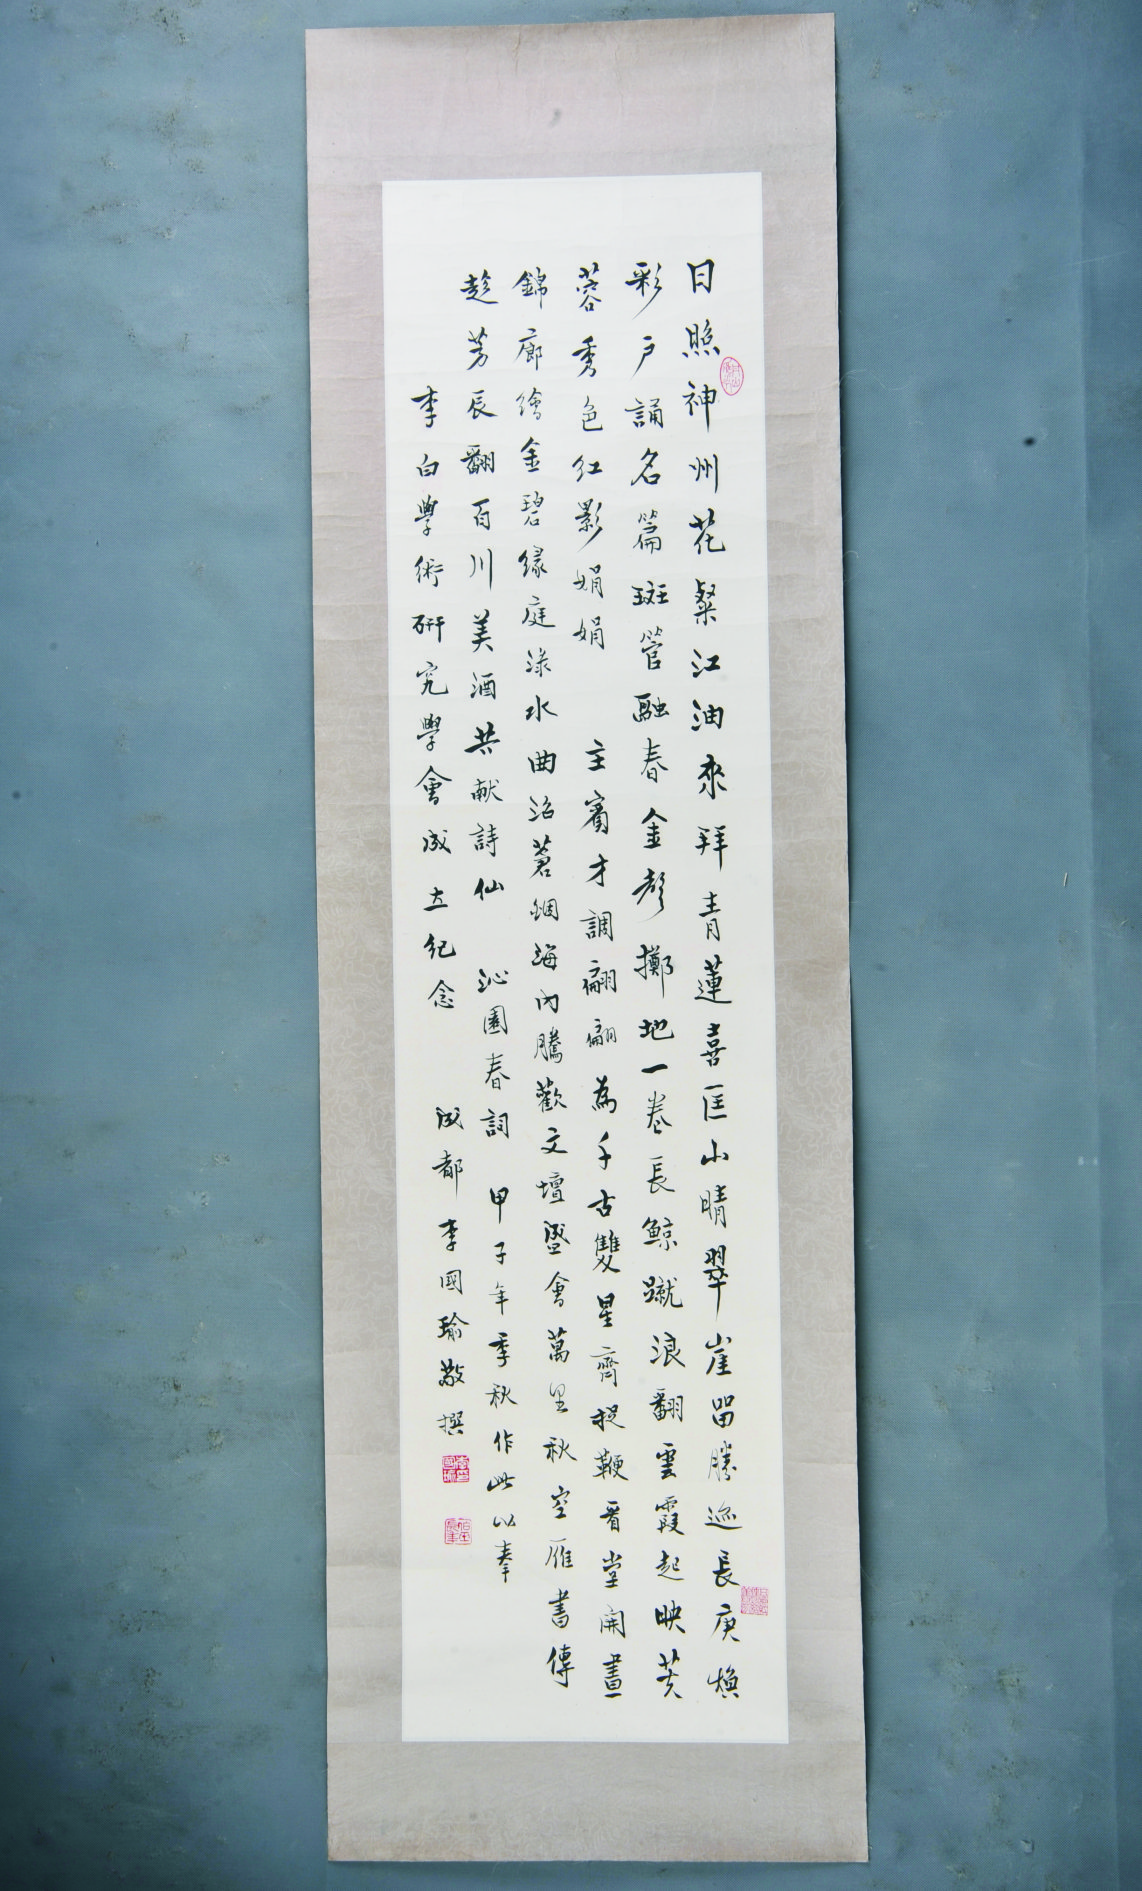 日照神州花粲江油來拜青蓮喜匡山晴翠崖留勝迹長庚煥
彩戶誦名篇斑管融春金聲擲地一卷長鯨蹴浪翻雲霞起映芙
蓉秀色紅影娟娟　主賓才調翩翩為千古雙星齊捉鞭看堂開畫
錦廊繪金碧緣庭淥水曲沼蒼煙海內騰歡文壇盛會萬里秋空雁書傳
趁芳辰翻百川美酒共献詩仙　沁園春詞　甲子年季秋作此以奉
李白學術研究學會成立紀念　成都李國瑜敬撰